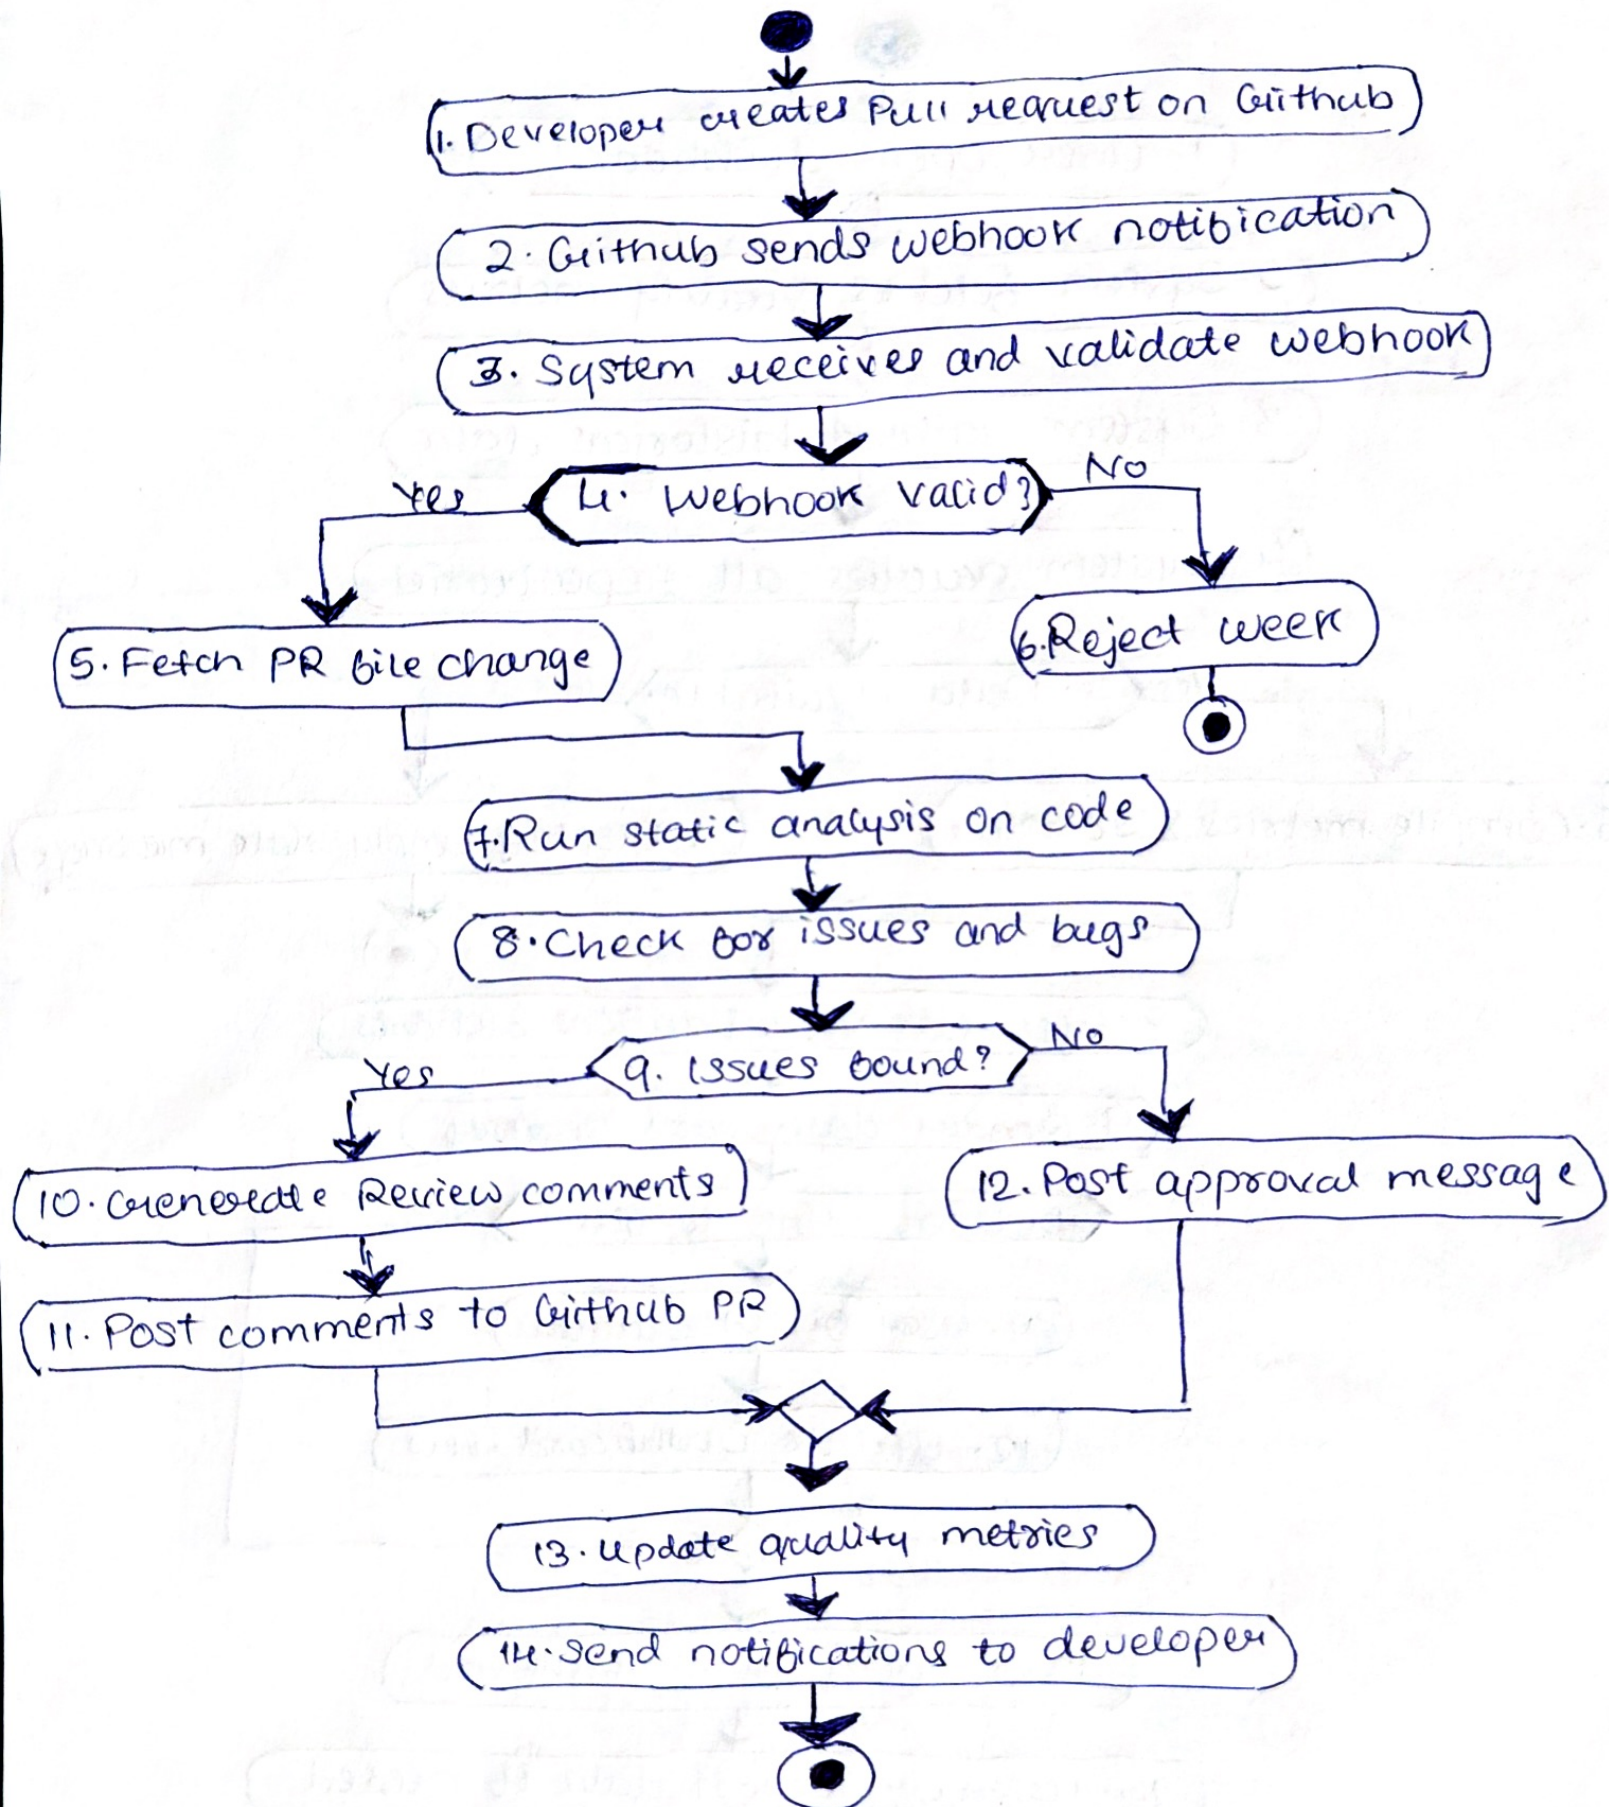 1. Developer creates Pull request on Github
2. Github sends webhook notification
3. System receives and validate webhook
4. Webhook valid?
Yes
No
5. Fetch PR file change
6. Reject week
7. Run static analysis on code
8. Check for issues and bugs
9. Issues found?
Yes
No
10. Generate Review comments
12. Post approval message
11. Post comments to Github PR
13. Update quality metries
14. Send notifications to developer